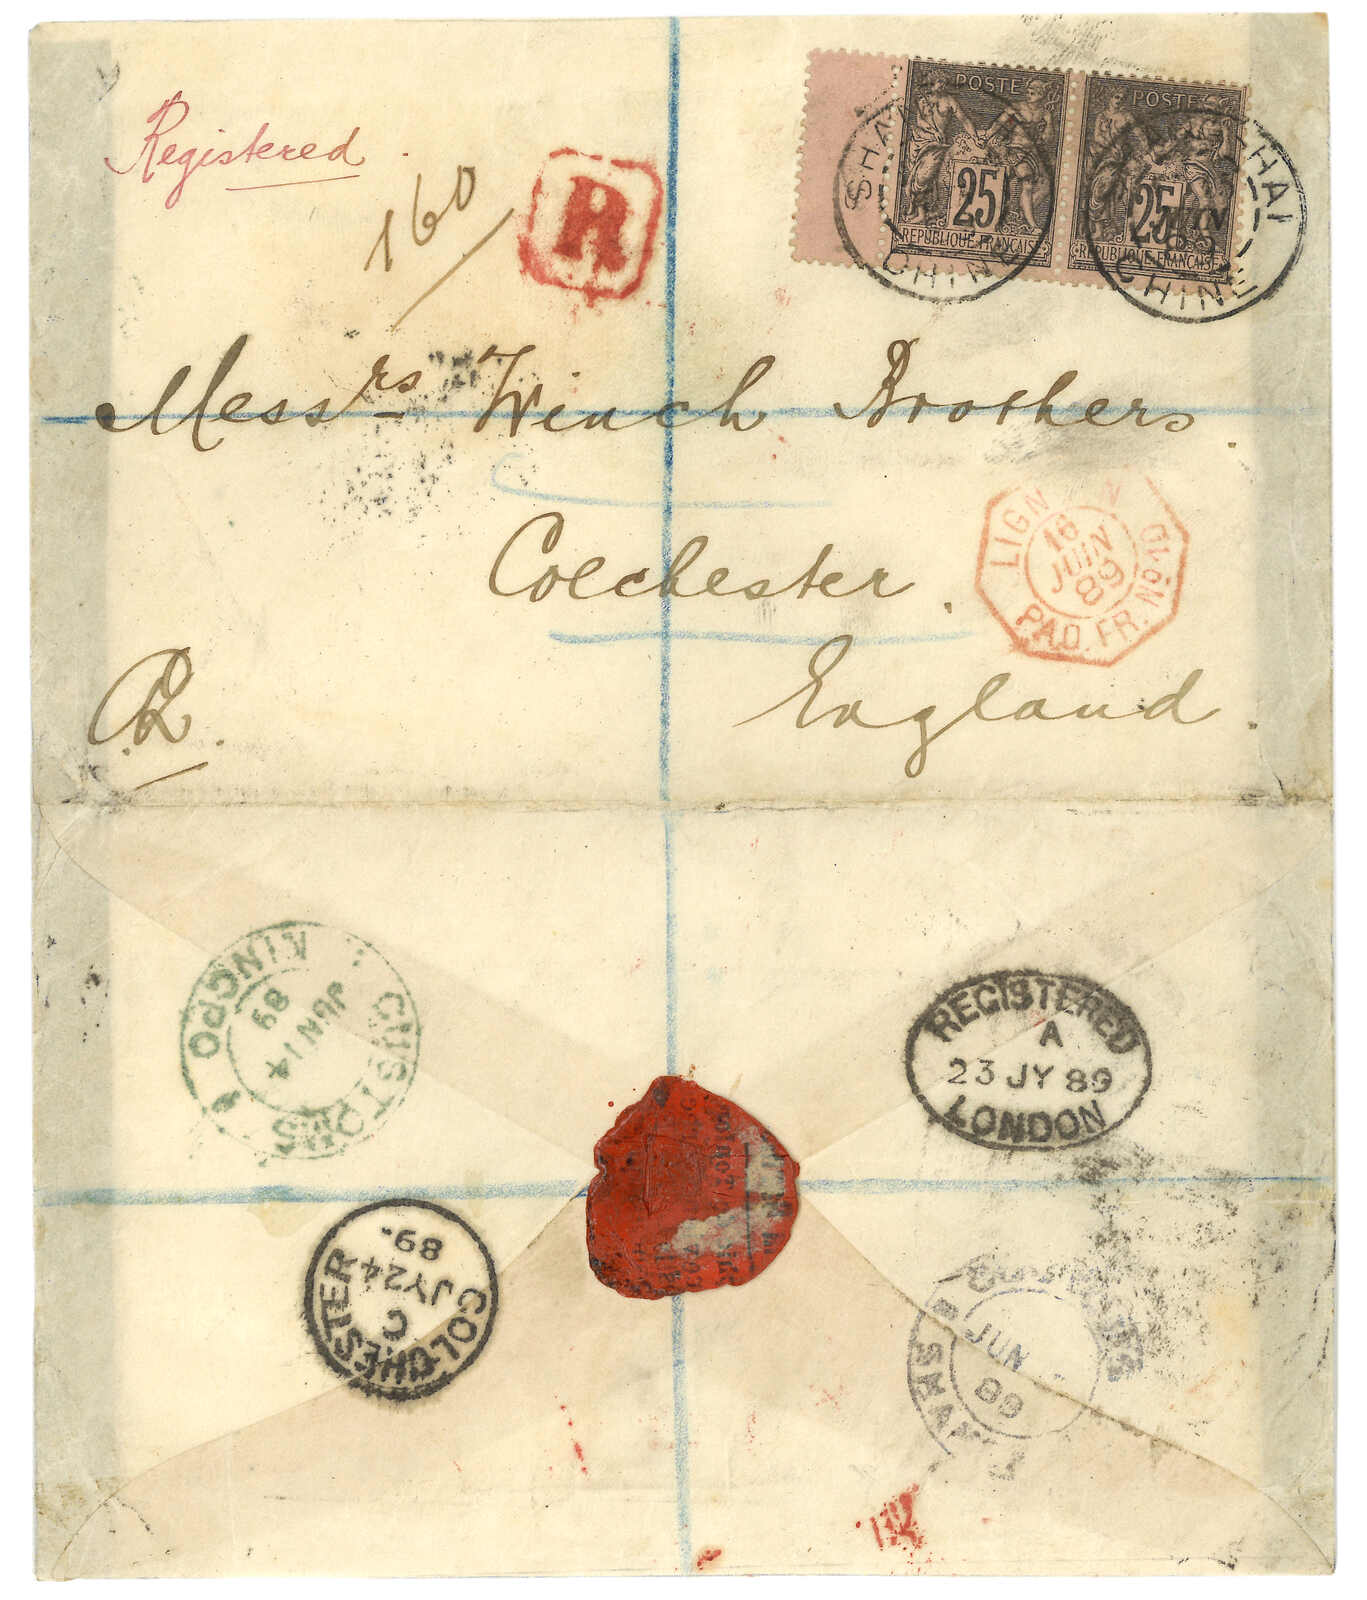 Registered
160
R
POSTE POSTE
25 25
REPUBLIQUE FRANCAISE REPUBLIQUE FRANCAISE
CHINE
CHINE
Messrs Winch Brothers.
Colchester.
England.
R.
LIGN N
PAQ. FR. Nº 10
16
JUIN
89
CUSTOMS
NINGPO
JUN 14
89
REGISTERED
A
23 JY 89
LONDON
COLCHESTER
C
JY 24
89
JUN
89